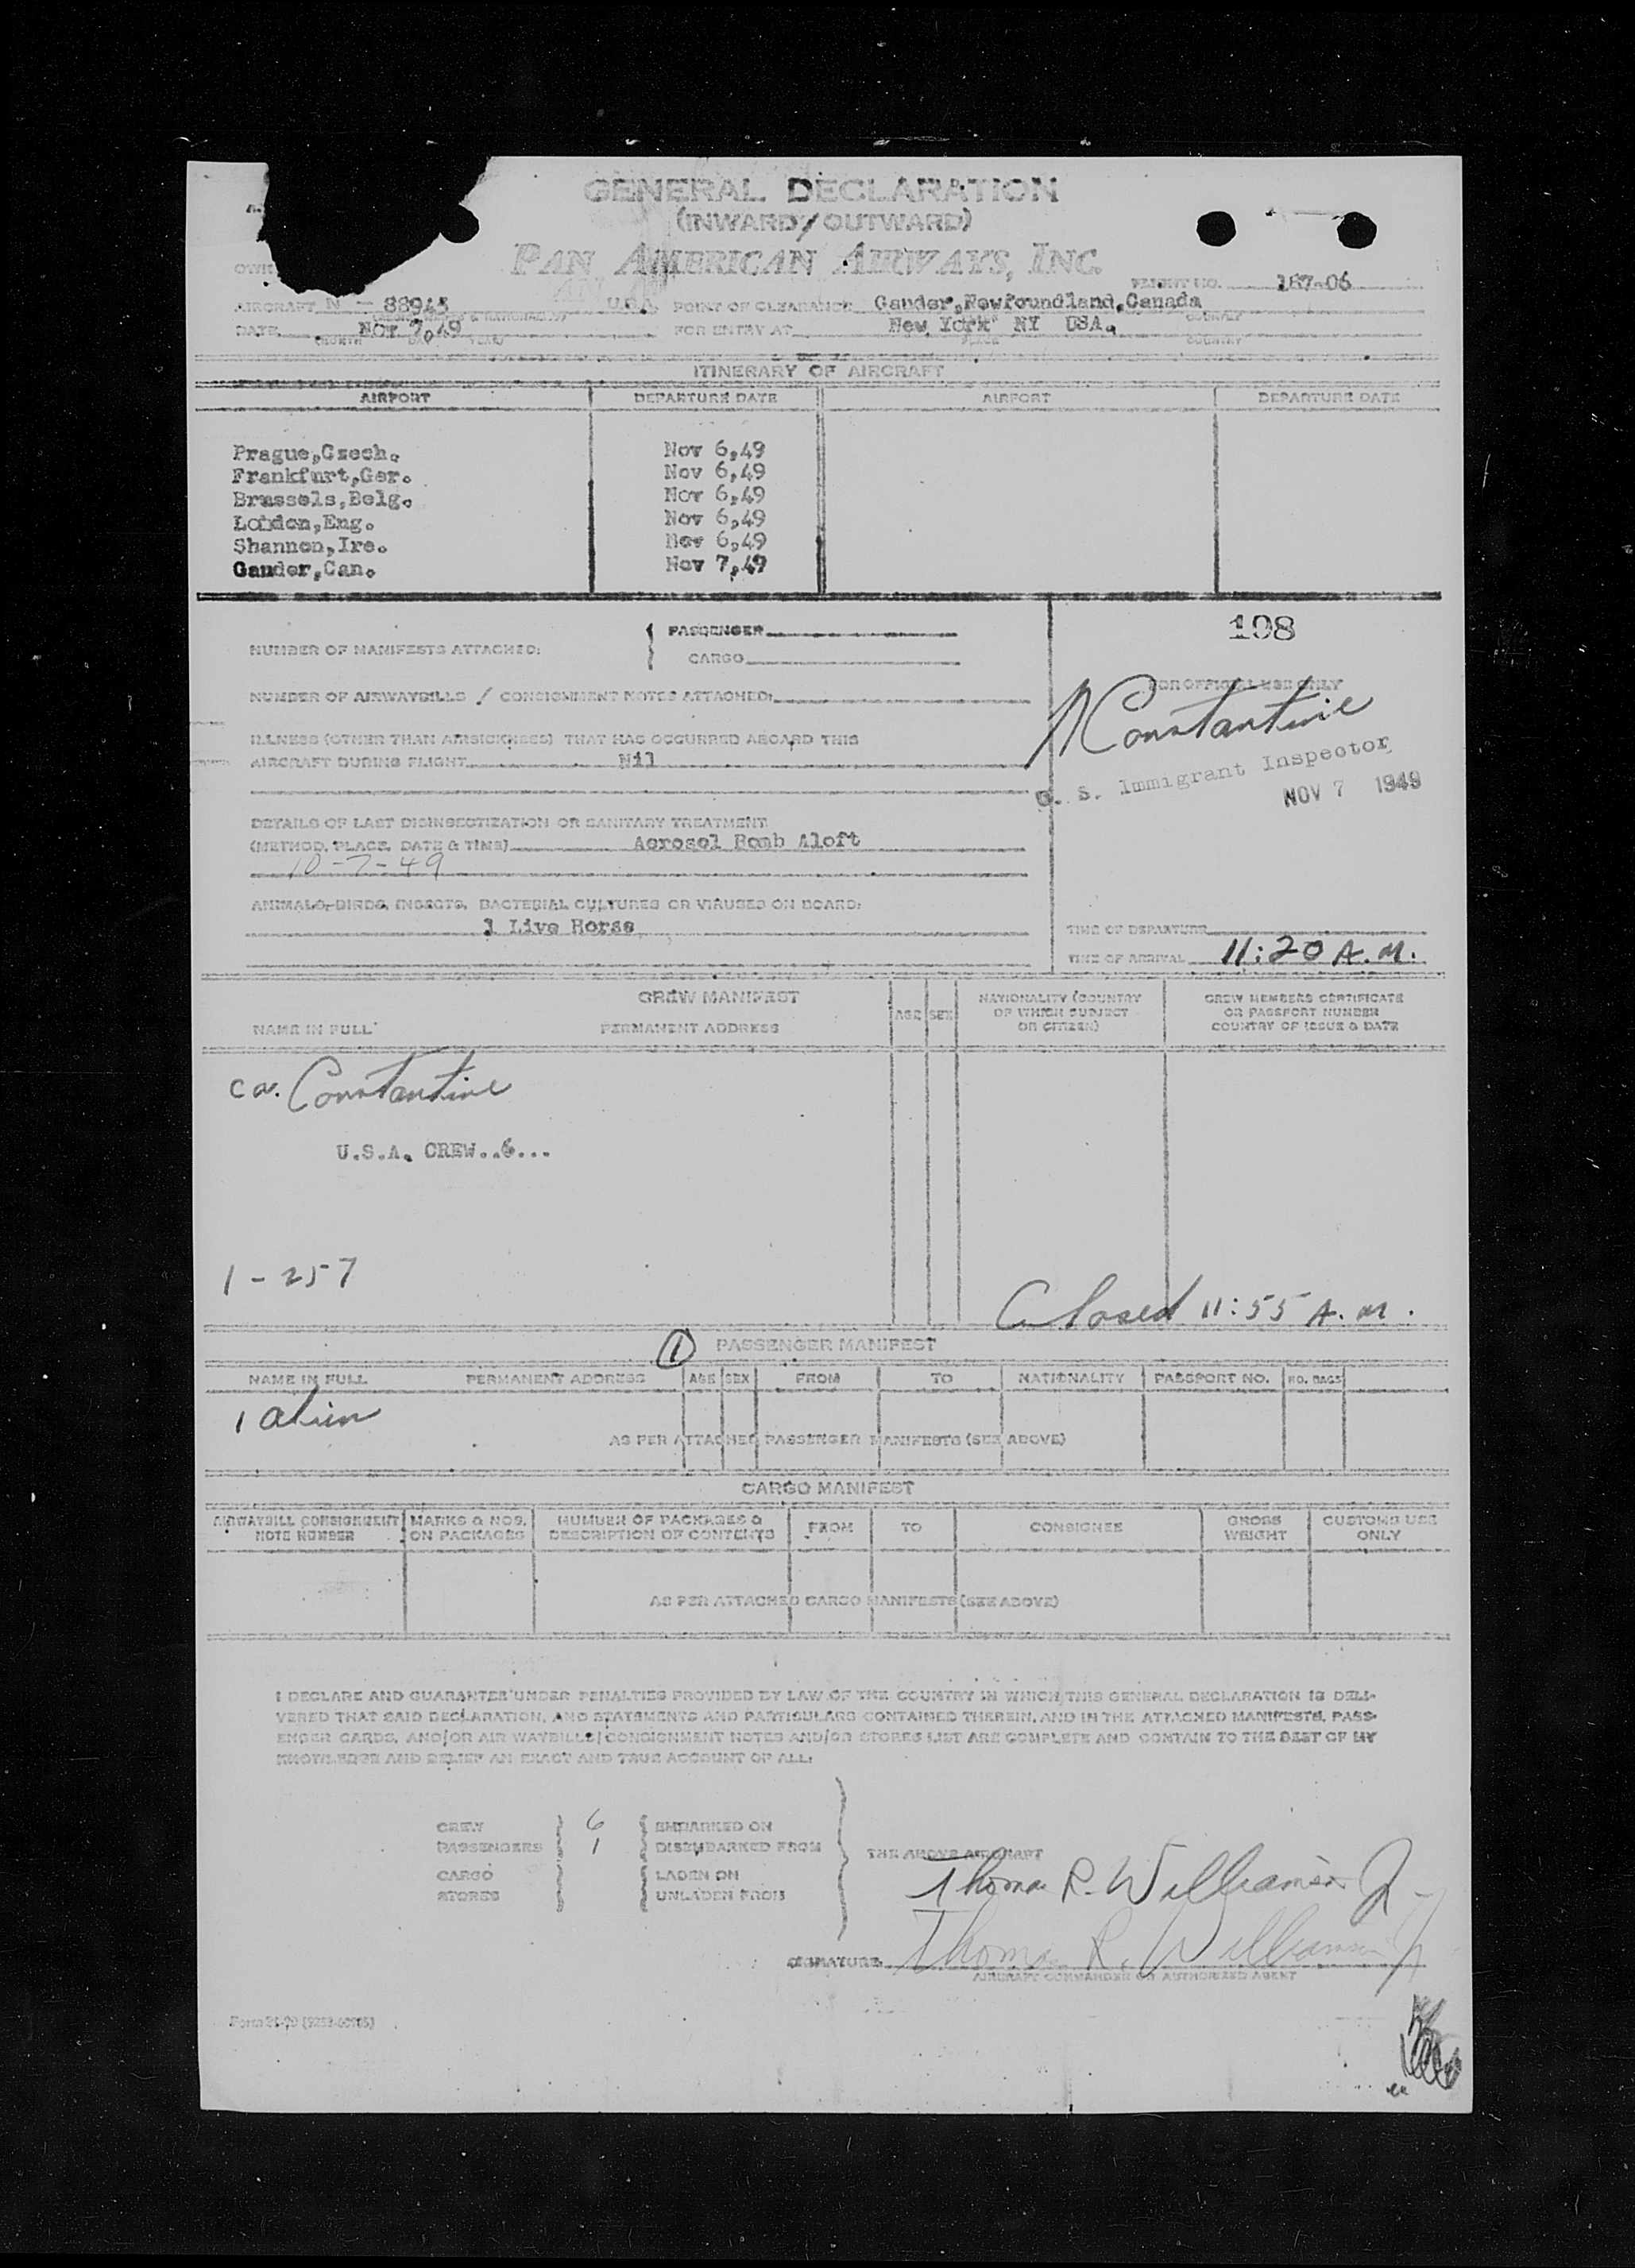 GENERAL DECLARATION
(INWARD/OUTWARD)
PAN AMERICAN AIRWAYS, INC.
FLIGHT NO. 187-06
AIRCRAFT N - 88945 U.S.A. POINT OF CLEARANCE Gander, Newfoundland, Canada
DATE Nov 7, 49 FOR ENTRY AT New York NY USA.
(MONTH DAY YEAR) PLACE COUNTRY
ITINERARY OF AIRCRAFT
AIRPORT DEPARTURE DATE AIRPORT DEPARTURE DATE
Prague,Czech. Nov 6,49
Frankfurt,Ger. Nov 6,49
Brussels,Belg. Nov 6,49
London,Eng. Nov 6,49
Shannon,Ire. Nov 6,49
Gander,Can. Nov 7,49
NUMBER OF MANIFESTS ATTACHED: { PASSENGER
CARGO
198
NUMBER OF AIRWAYBILLS / CONSIGNMENT NOTES ATTACHED:
FOR OFFICIAL USE ONLY
Constantine
U. S. Immigrant Inspector
NOV 7 1949
ILLNESS (OTHER THAN AIRSICKNESS) THAT HAS OCCURRED ABOARD THIS
AIRCRAFT DURING FLIGHT Nil
DETAILS OF LAST DISINSECTIZATION OR SANITARY TREATMENT
(METHOD, PLACE, DATE & TIME) Aerosol Bomb Aloft
10-7-49
ANIMALS, BIRDS, INSECTS, BACTERIAL CULTURES OR VIRUSES ON BOARD:
1 Live Horse
TIME OF DEPARTURE
TIME OF ARRIVAL 11:20 A.M.
CREW MANIFEST
NAME IN FULL PERMANENT ADDRESS AGE SEX NATIONALITY (COUNTRY OF WHICH SUBJECT OR CITIZEN) CREW MEMBERS CERTIFICATE OR PASSPORT NUMBER COUNTRY OF ISSUE & DATE
Constantine
U.S.A. CREW..6...
1-257
Closed 11:55 A.M.
1 PASSENGER MANIFEST
NAME IN FULL PERMANENT ADDRESS AGE SEX FROM TO NATIONALITY PASSPORT NO. NO. BAGS
1 alien
AS PER ATTACHED PASSENGER MANIFESTS (SEE ABOVE)
CARGO MANIFEST
AIRWAYBILL CONSIGNMENT NOTE NUMBER MARKS & NOS. ON PACKAGES NUMBER OF PACKAGES & DESCRIPTION OF CONTENTS FROM TO CONSIGNEE GROSS WEIGHT CUSTOMS USE ONLY
AS PER ATTACHED CARGO MANIFESTS (SEE ABOVE)
I DECLARE AND GUARANTEE UNDER PENALTIES PROVIDED BY LAW OF THE COUNTRY IN WHICH THIS GENERAL DECLARATION IS DELI-
VERED THAT SAID DECLARATION, AND STATEMENTS AND PARTICULARS CONTAINED THEREIN, AND IN THE ATTACHED MANIFESTS, PASS-
ENGER CARDS, AND/OR AIR WAYBILLS/CONSIGNMENT NOTES AND/OR STORES LIST ARE COMPLETE AND CONTAIN TO THE BEST OF MY
KNOWLEDGE AND BELIEF AN EXACT AND TRUE ACCOUNT OF ALL:
CREW 6 EMBARKED ON
PASSENGERS 1 DISEMBARKED FROM
THE ABOVE AIRCRAFT
CARGO LADEN ON
STORES UNLADEN FROM
Thomas R. Williamson Jr
SIGNATURE Thomas R. Williamson Jr
AIRCRAFT COMMANDER OR AUTHORIZED AGENT